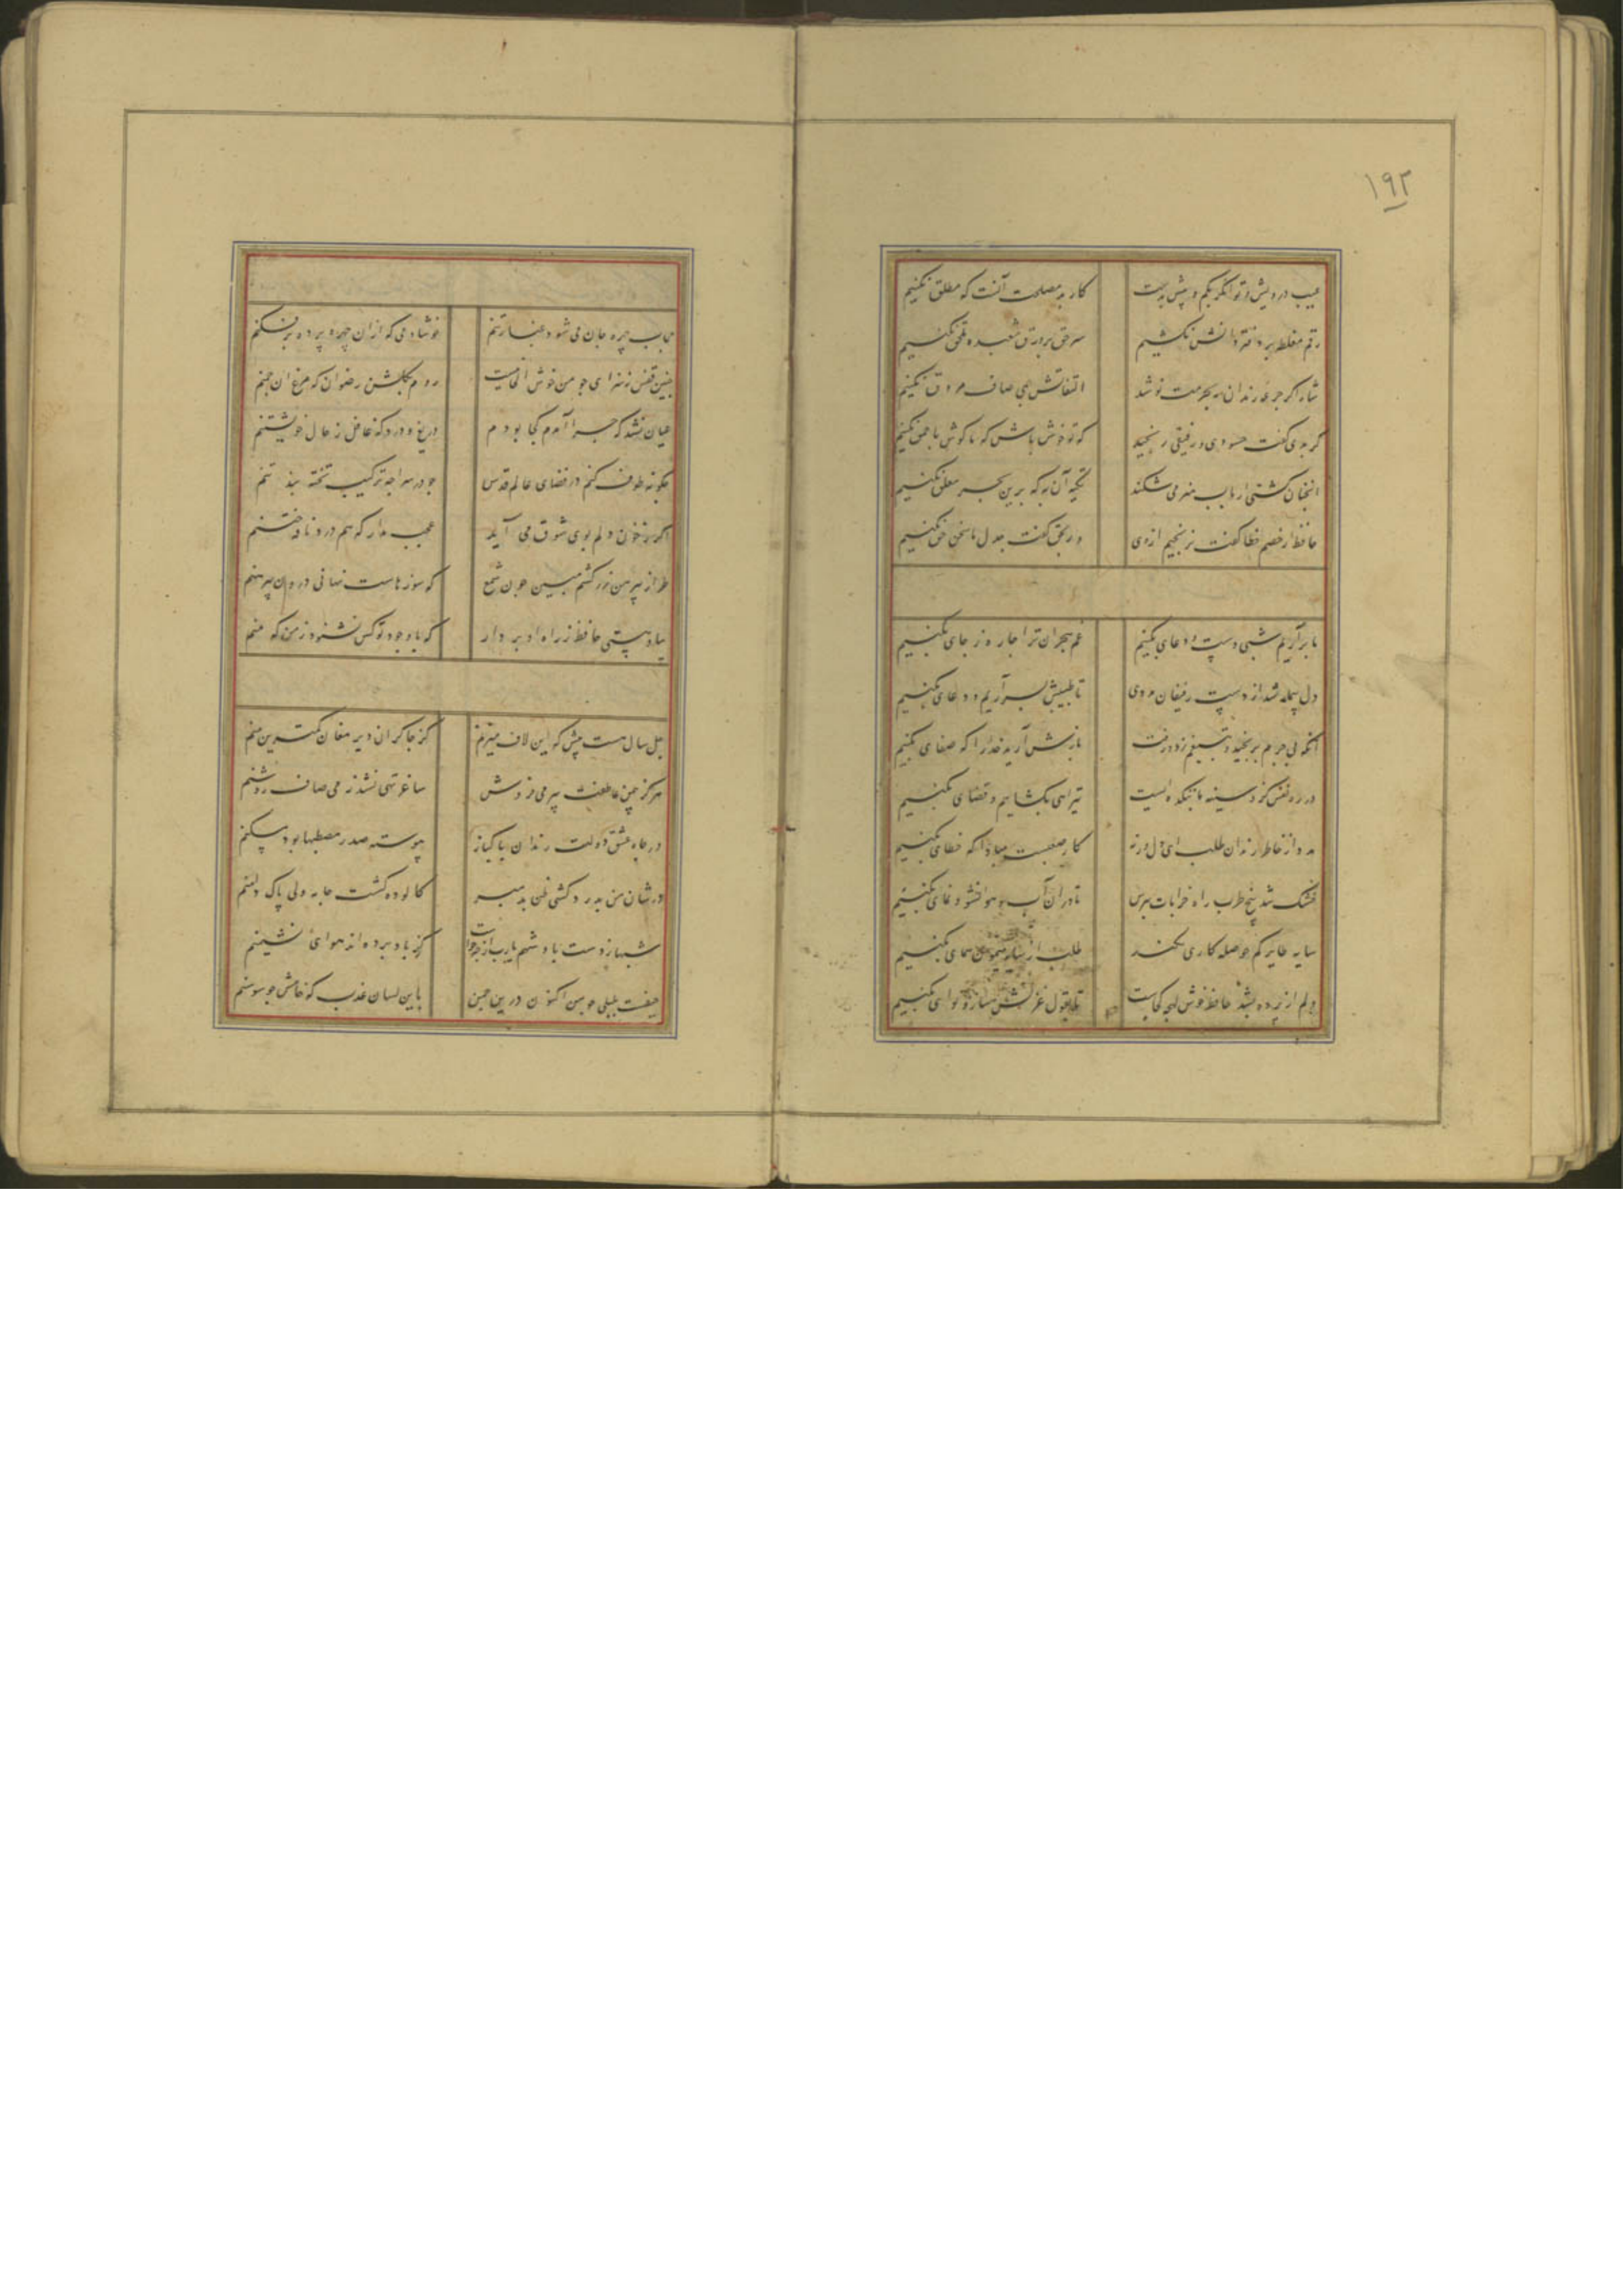 ۱۹۲
عیب درویش و توانگر بکم و بیش بدست کار بد مصلحت آنست که مطلق نکنیم
رقم مغلطه بر دفتر دانش نکشیم سر حق بر ورق شعبده ملحق نکنیم
شاه اگر جرعه رندان نه بحرمت نوشد التفاتش بمی صاف مروق نکنیم
گر بدی گفت حسودی و رفیقی رنجید گو تو خوش باش که ما گوش باحمق نکنیم
آسمان کشتی ارباب هنر می شکند تکیه آن به که برین بحر معلق نکنیم
حافظ ار خصم خطا گفت نرنجیم ازوی ور بحق گفت جدل با سخن حق نکنیم
ما برآریم شبی دست و دعای بکنیم غم هجران ترا چاره ز جای بکنیم
دل بیمار شد از دست رفیقان مددی تا طبیبش بسر آریم و دوای بکنیم
آنکه بی جرم برنجید و بتیغم زد و رفت بازش آرید خدا را که صفای بکنیم
در ره نفس کزو سینه ما بتکده است تیر آهی بکشاییم و قضای بکنیم
مدد از خاطر رندان طلب ای دل ورنه کار صعبست مبادا که خطای بکنیم
خشک شد بیخ طرب راه خرابات بپرس تا دران آب و هوا نشو و نمای بکنیم
سایه طایر کم حوصله کاری نکند طلب از سایه میمون همای بکنیم
دلم از پرده بشد حافظ خوش لهجه کجاست تا بقول غزلش ساز و نوای بکنیم
حجاب چهره جان می شود غبار تنم خوشا دمی که ازان چهره پرده برفکنم
چنین قفس نه سزای چو من خوش الحانیست روم بگلشن رضوان که مرغ آن چمنم
عیان نشد که چرا آمدم کجا بودم دریغ و درد که غافل ز حال خویشتنم
چگونه طوف کنم در فضای عالم قدس چو در سراچه ترکیب تخته بند تنم
اگر ز خون دلم بوی شوق می آید عجب مدار که هم درد نافه ختنم
طراز پیرهن زرکشم مبین چون شمع که سوزهاست نهانی درون پیرهنم
بیا و هستی حافظ ز راه او بردار که با وجود تو کس نشنود ز من که منم
چل سال هست بیش که این لاف میزنم کز چاکران دیر مغان کمترین منم
هرگز بیمن عاطفت پیر می فروش ساغر تهی نشد ز می صاف روشنم
در جاه عشق و دولت رندان پاکباز پیوسته صدر مصطبها بود مسکنم
در شان من بدردکشی ظن بد مبر کالوده گشت جامه ولی پاک دامنم
شهباز دست پادشهم یارب از چه حالت کز یاد برده اند هوای نشیمنم
حیفست بلبلی چو من اکنون درین چمن با این لسان عذب که خامش چو سوسنم